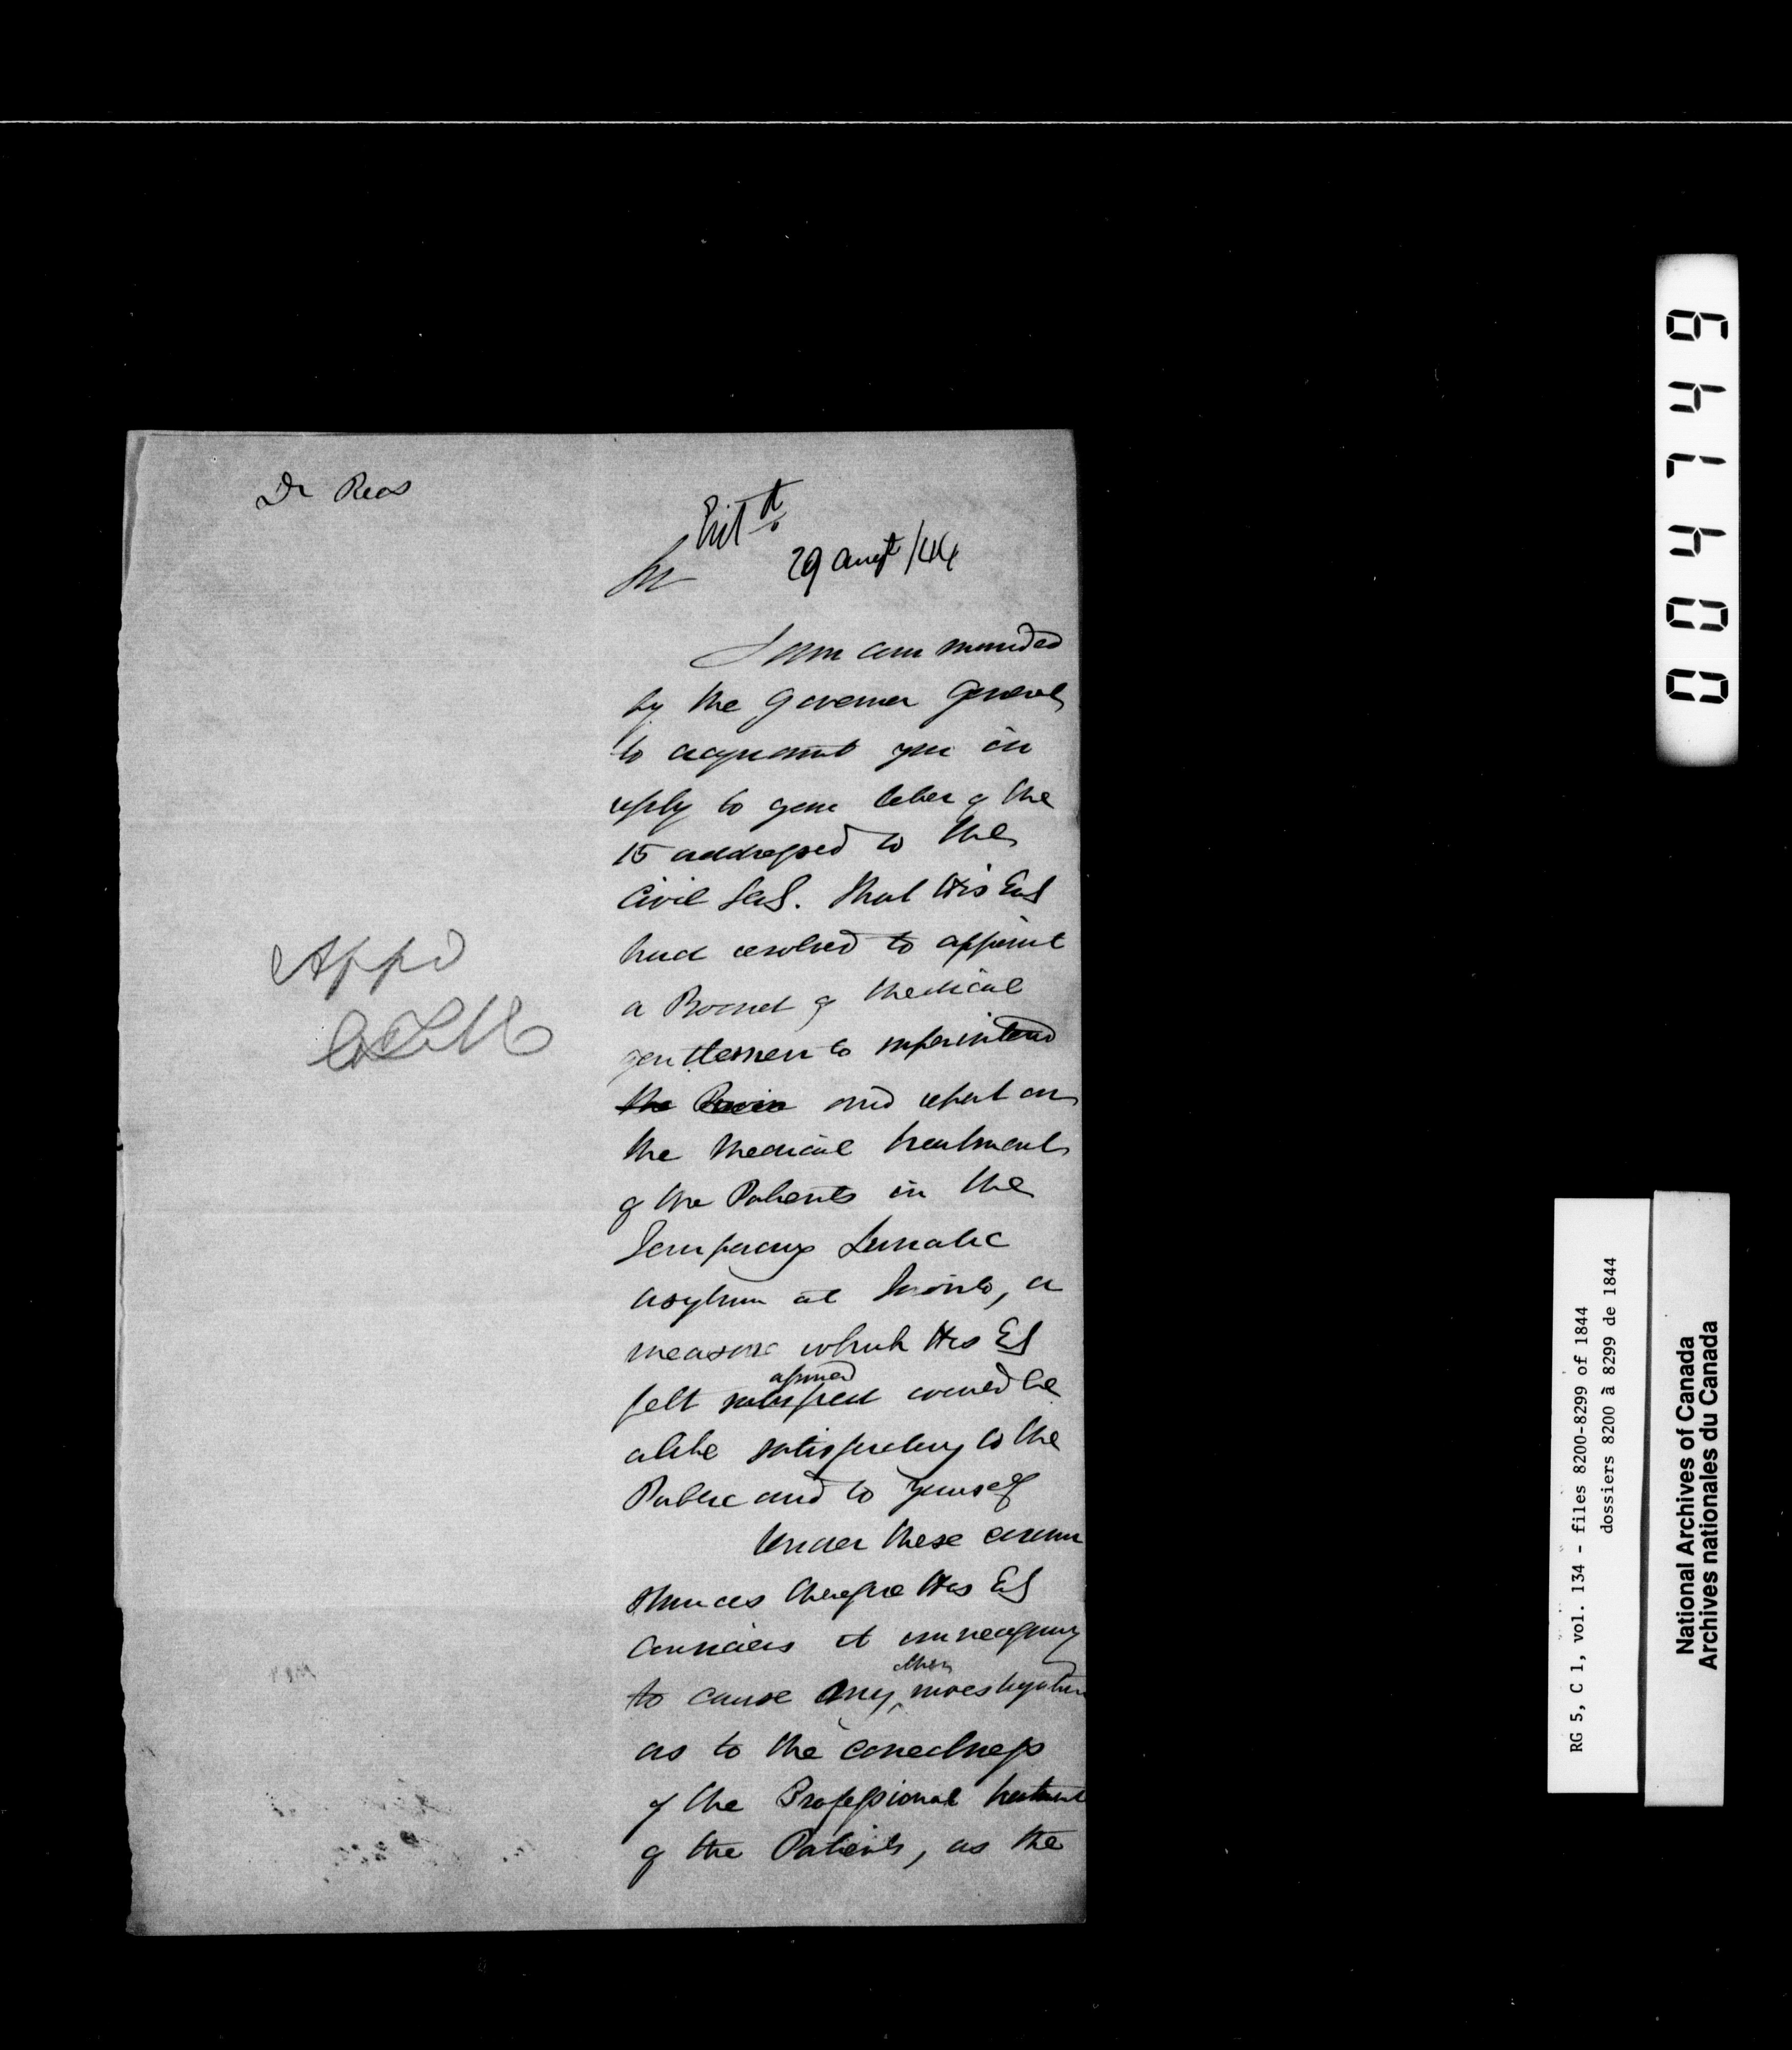 Dr Rees
Entd
29 Augt /44
Sir
I am commanded
by the Governor General
to acquaint you in
reply to your letter of the
15 addressed to the
Civil Secy. that His Exy
had resolved to appoint
a Board of Medical
gentlemen to superintend
the and report on
the Medical treatment
of the Patients in the
Temporary Lunatic
Asylum at Toronto, a
measure which His Exy
assured
felt satisfied would be
alike satisfactory to the
Public and to yourself
Under these circum
stances therefore His Exy
considers it unnecessary
other
to cause any investigation
as to the correctness
of the Professional treatment
of the Patients, as the
Appd
004746
RG 5, C 1, vol. 134 - files 8200-8299 of 1844
dossiers 8200 à 8299 de 1844
National Archives of Canada
Archives nationales du Canada